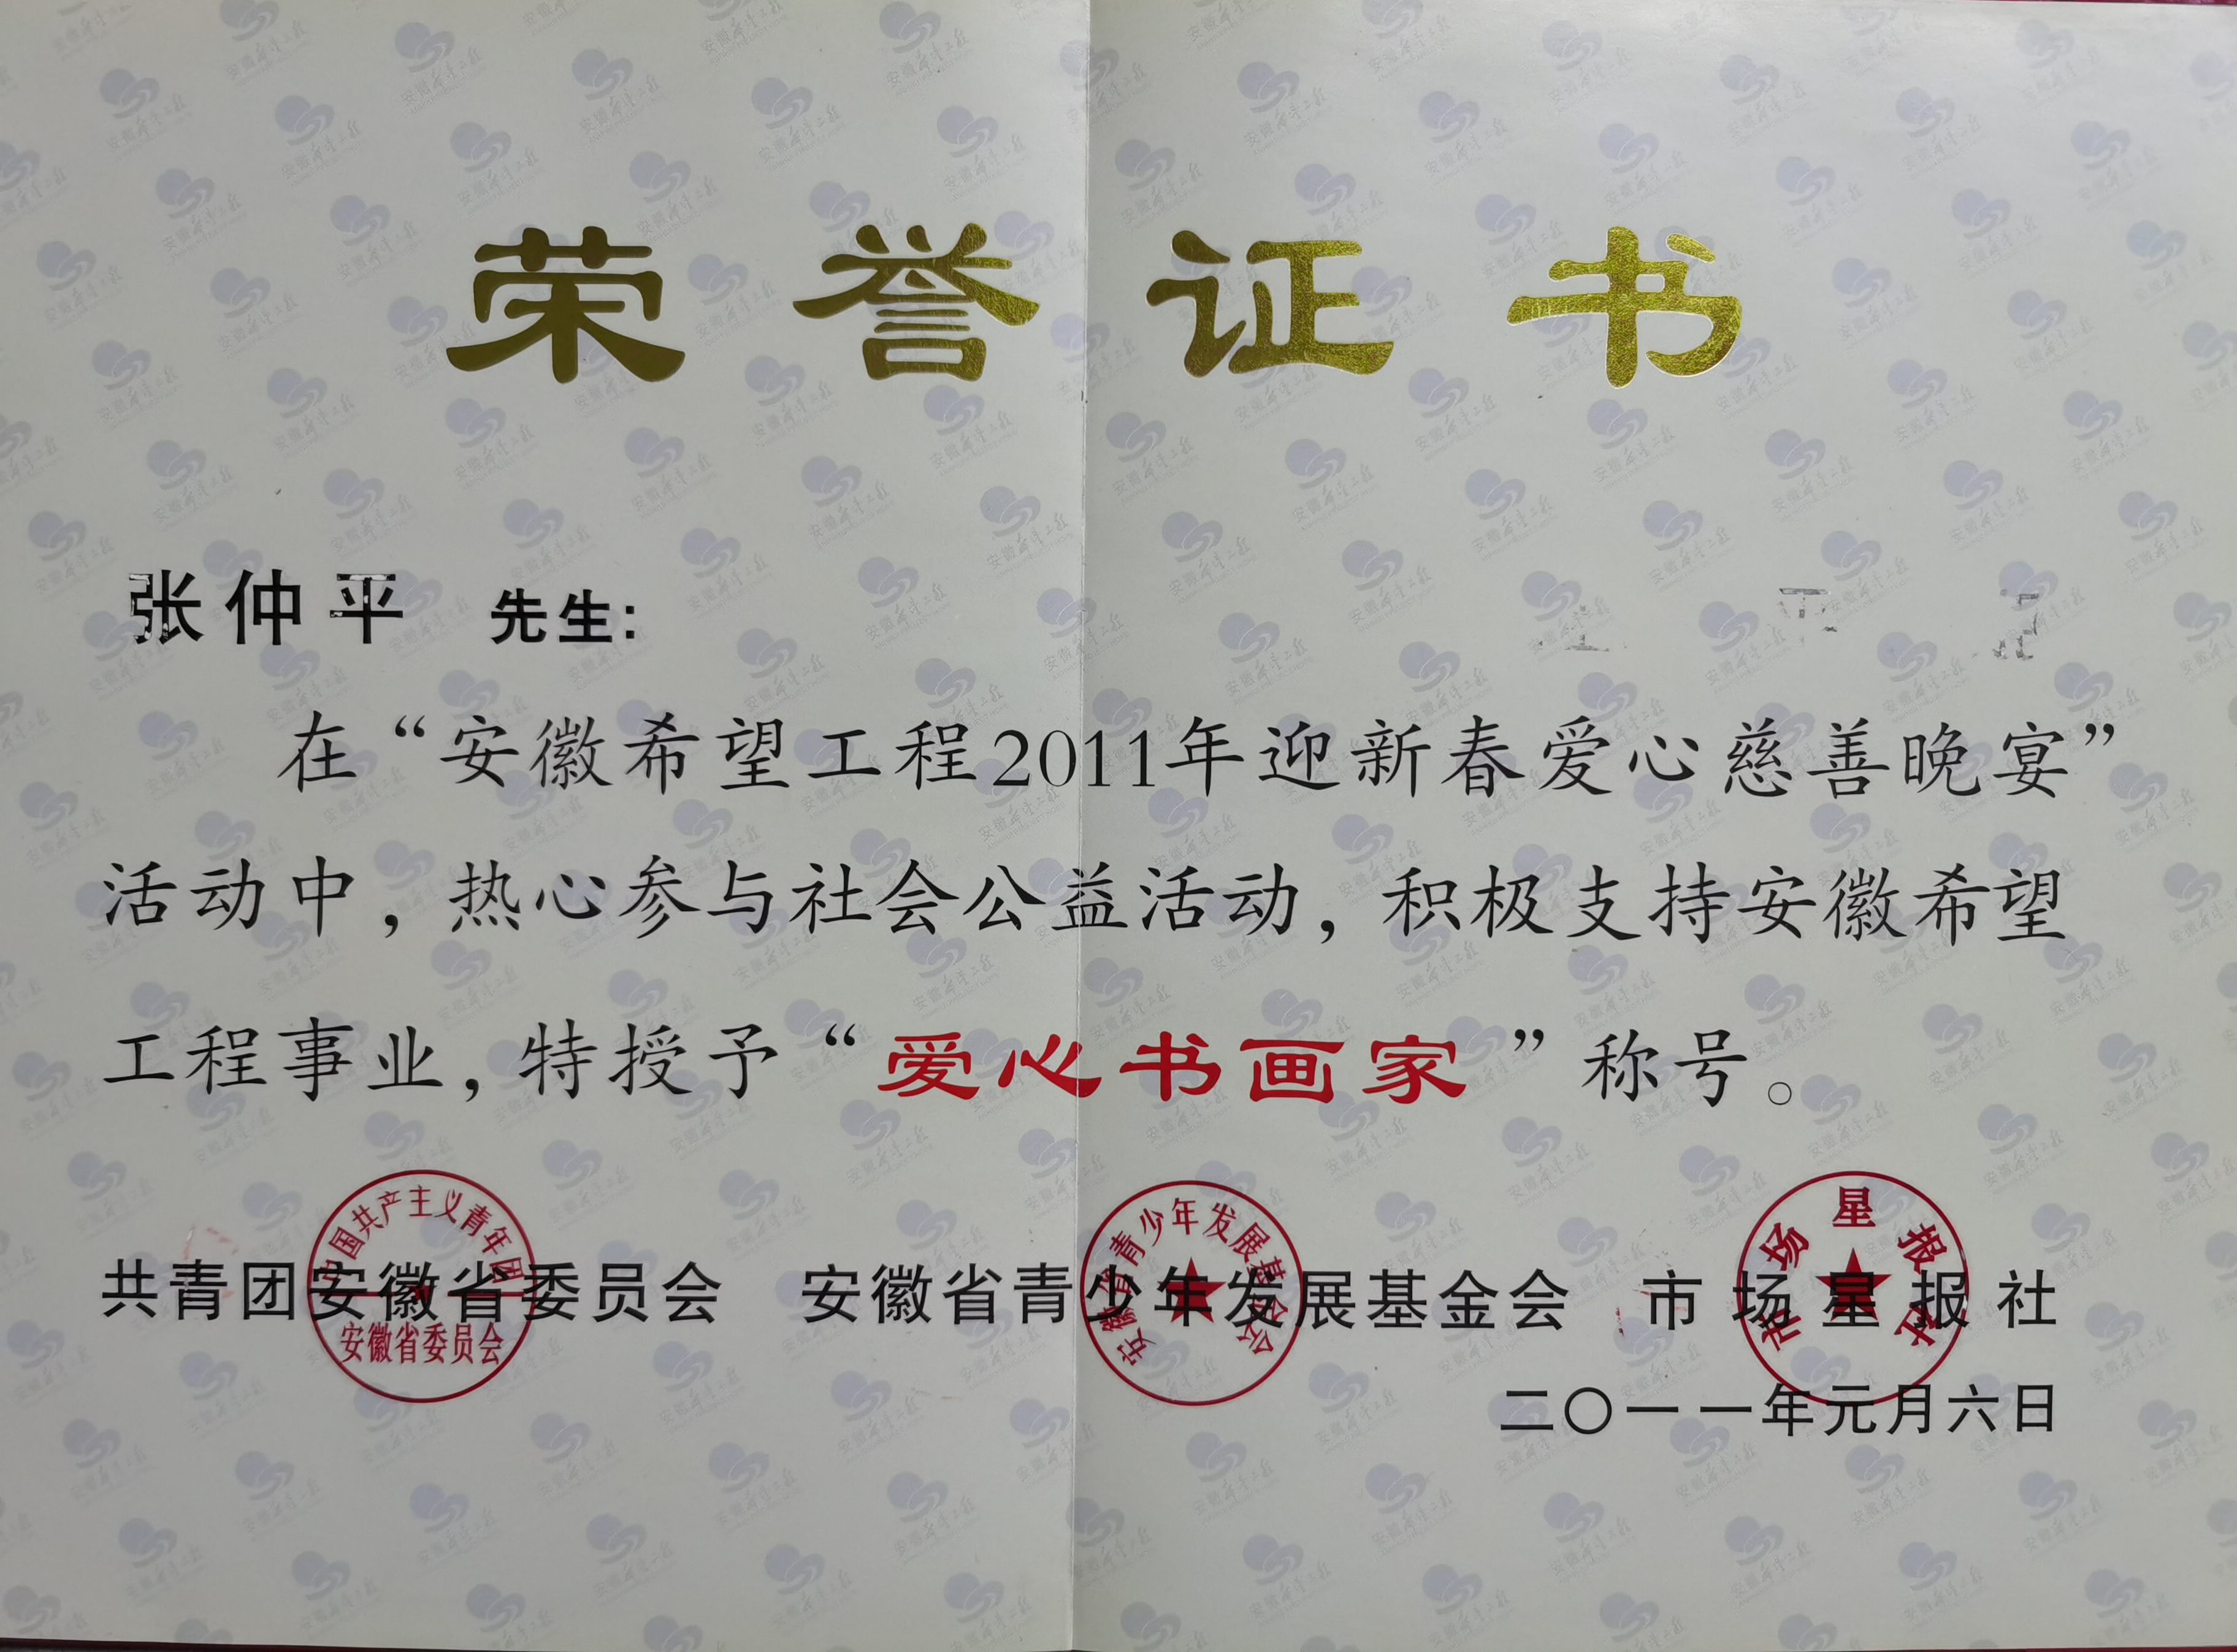 荣誉证书
张仲平 先生:
在“安徽希望工程2011年迎新春爱心慈善晚宴”
活动中，热心参与社会公益活动，积极支持安徽希望
工程事业，特授予“爱心书画家”称号。
共青团安徽省委员会 安徽省青少年发展基金会 市场星报社
中国共产主义青年团
安徽省委员会
安徽省青少年发展基金会
市场星报社
二〇一一年元月六日
安徽希望工程